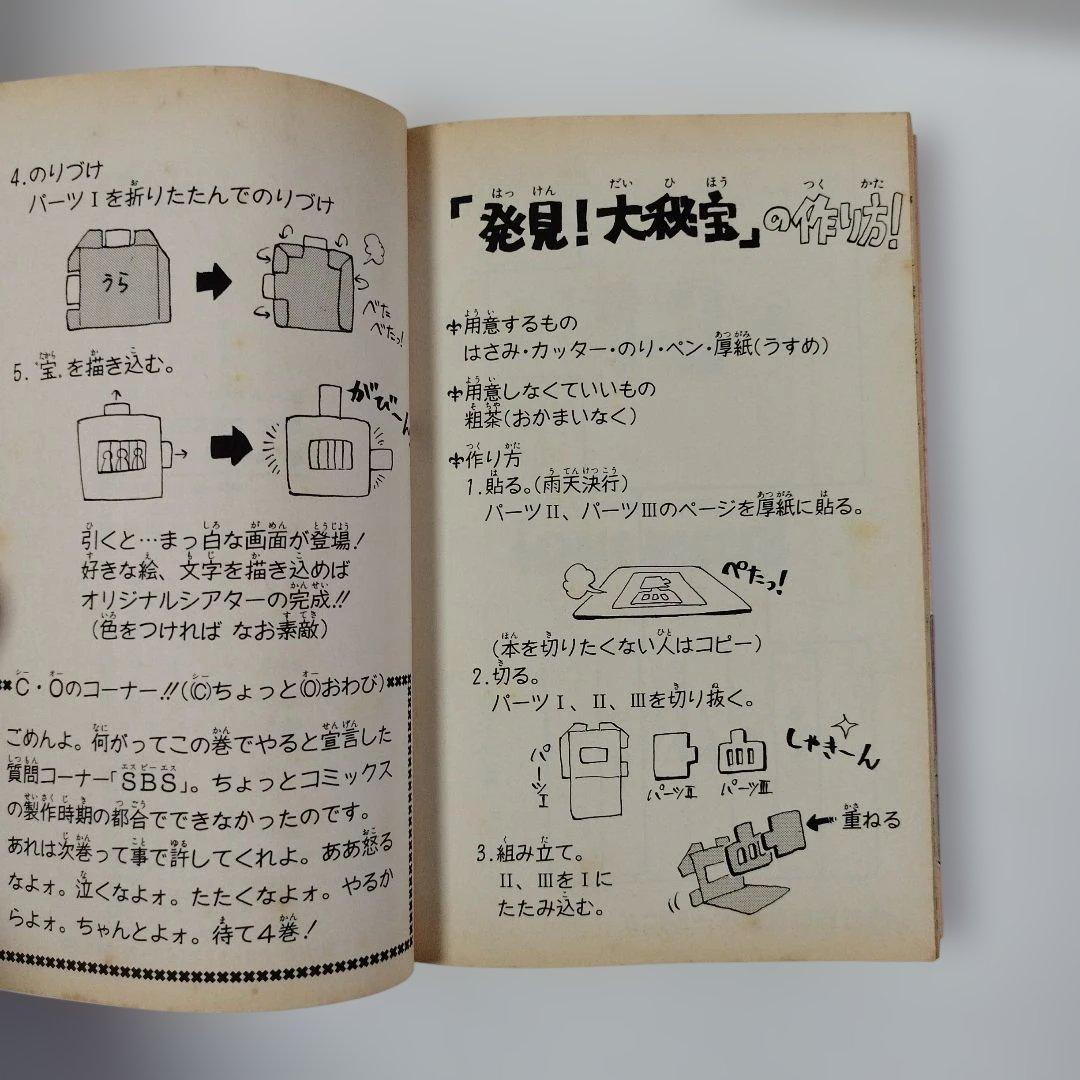 「発見！大秘宝」の作り方！
はっ けん だい ひ ほう つく かた
✢用意するもの
はさみ・カッター・のり・ペン・厚紙(うすめ)
✢用意しなくていいもの
粗茶(おかまいなく)
✢作り方
1.貼る。(雨天決行)
パーツⅡ、パーツⅢのページを厚紙に貼る。
ぺたっ！
(本を切りたくない人はコピー)
2.切る。
パーツⅠ、Ⅱ、Ⅲを切り抜く。
パーツⅠ
パーツⅡ
パーツⅢ
しゃきーん
3.組み立て。
Ⅱ、ⅢをⅠに
たたみ込む。
重ねる
4.のりづけ
パーツⅠを折りたたんでのりづけ
うら
べた
べたっ！
5.‘宝’を描き込む。
がびーん
引くと…まっ白な画面が登場！
好きな絵、文字を描き込めば
オリジナルシアターの完成!!
(色をつければ なお素敵)
C・Oのコーナー!!(Ⓒちょっと Ⓞおわび)
ごめんよ。何がってこの巻でやると宣言した
質問コーナー「SBS」。ちょっとコミックス
の製作時期の都合でできなかったのです。
あれは次巻って事で許してくれよ。ああ怒る
なよォ。泣くなよォ。たたくなよォ。やるか
らよォ。ちゃんとよォ。待て4巻！